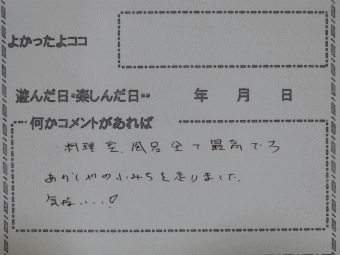 よかったよココ
遊んだ日・楽しんだ日・・ 年 月 日
何かコメントがあれば
料理、室、風呂全て最高でろ
あかしやの小みちを走りました。
気持....!